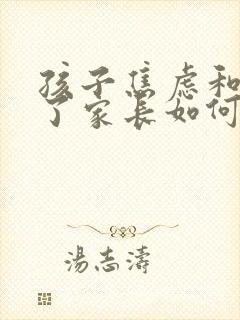 孩子焦虑和
了家长如何
湯志濤